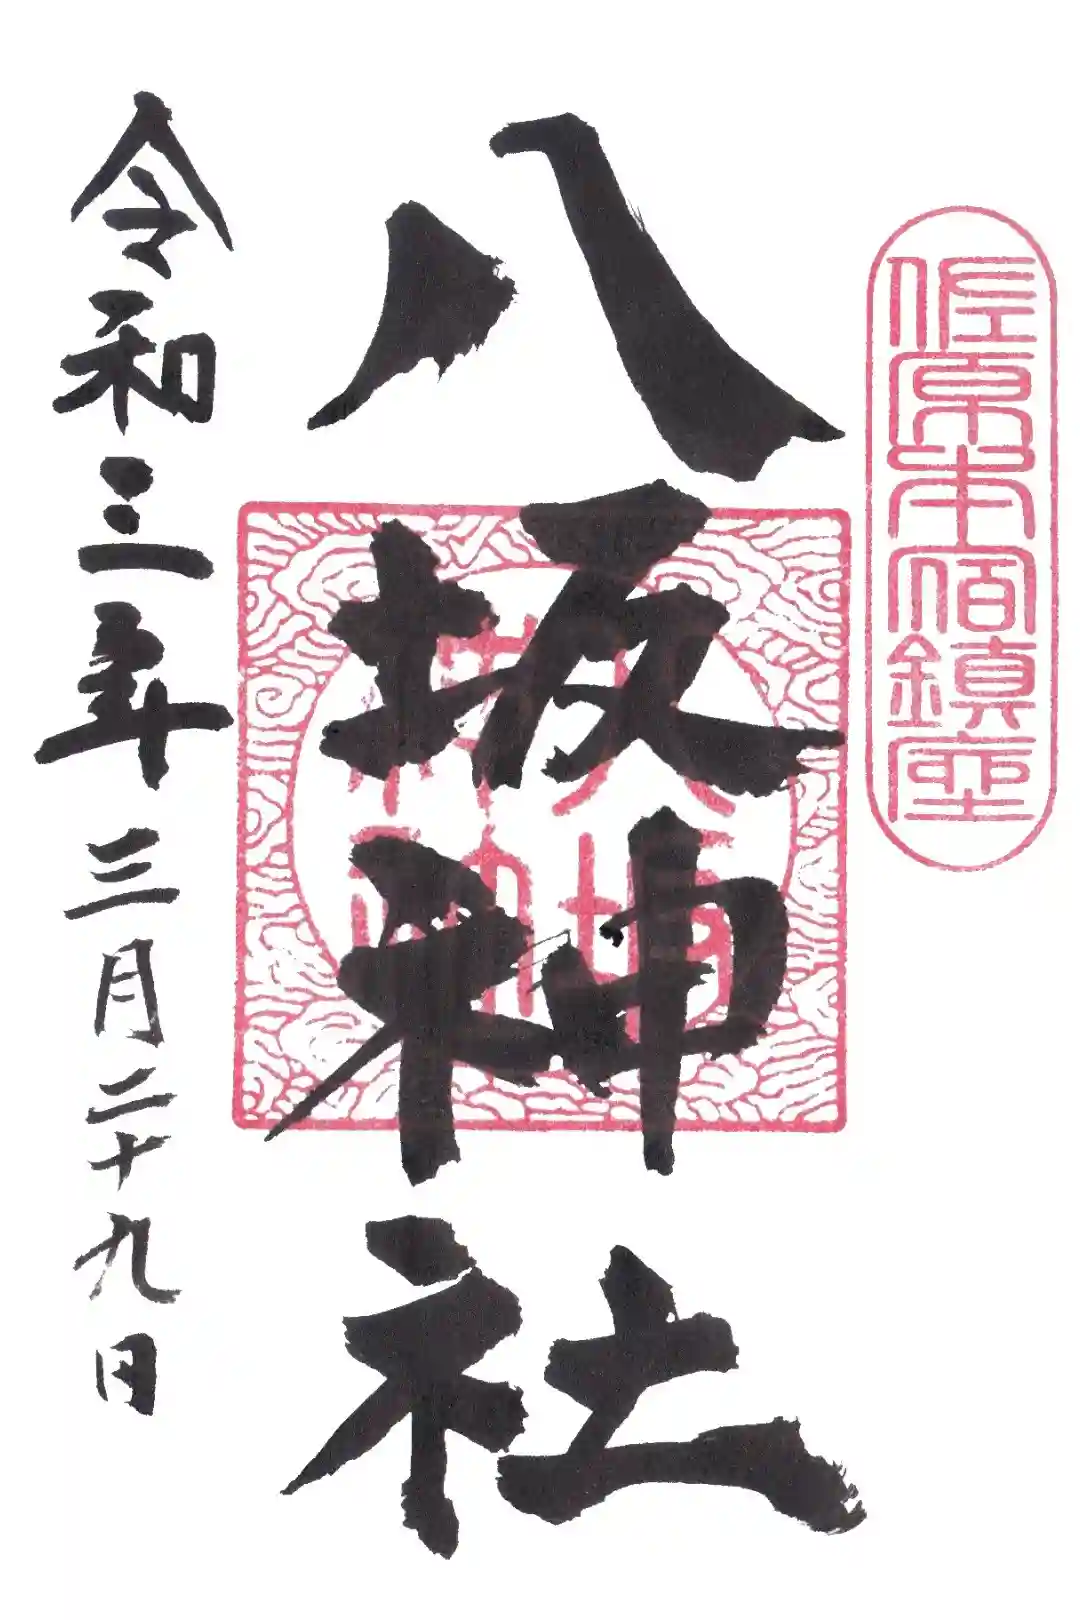 佐原本宿鎮座
八坂神社
八坂
神社
令和三年三月二十九日